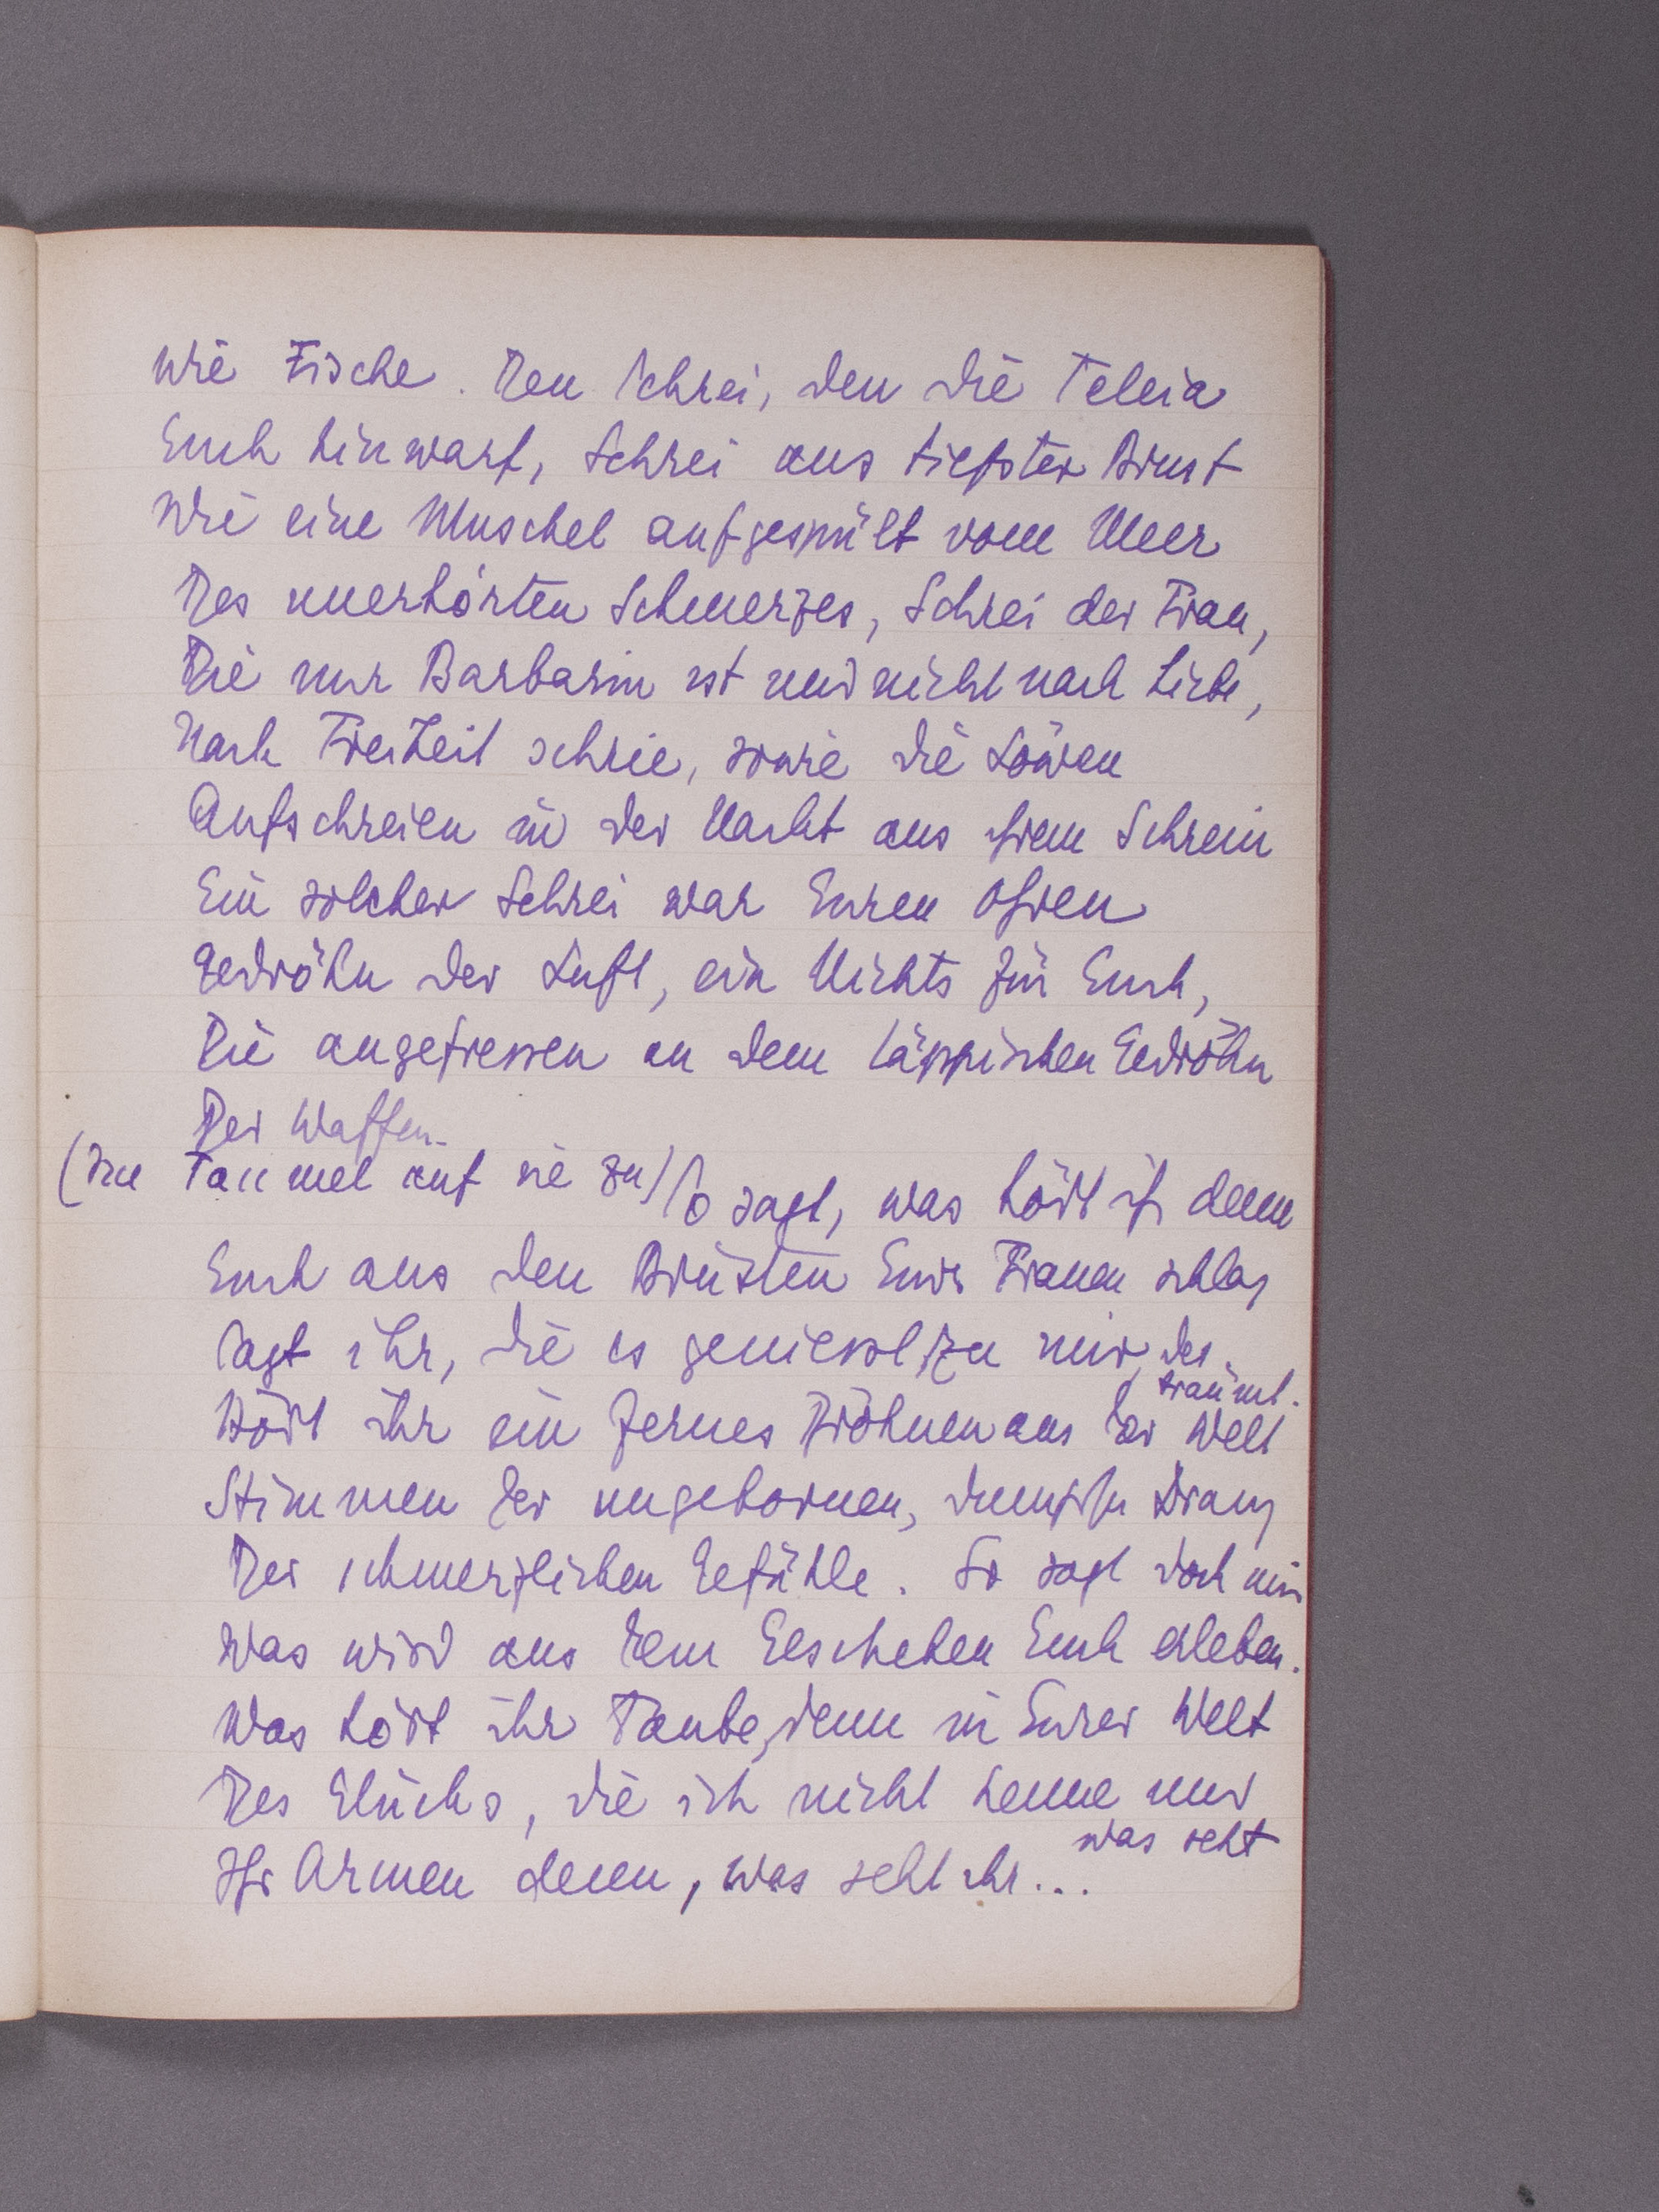 Wie Fische. Den Schrei, den die Teleia
Euch hinwarf, Schrei aus tiefster Brust
Wie eine Muschel aufgespült vom Meer
Des unerhörten Schmerzes, Schrei der Frau,
Die nur Barbarin ist und nicht nach Liebe,
Nach Freiheit schrie, sowie die Löwen
Aufschreien in der Nacht aus ihrem Schrein
Ein solcher Schrei war Euren Ohren
Gedröhn der Luft, ein Nichts für Euch,
Die angefressen an dem läppischen Gedröhn
Der Waffen.
(Im Taumel auf sie zu) So sagt, was hört ihr denn
Euch aus den Brüsten Eurer Frauen schlag
Sagt ihr, die es zu nur
träumt.
Hört ihr ein fernes Dröhnen aus der Welt
Stimmen der ungebornen, dumpfen Drang
Der schmerzlichen Gefühle. So sagt doch mir
Was wird aus dem Geschehen Euch erleben.
Was hört ihr Taube, denn in Eurer Welt
Des Glücks, die ich nicht kenne und
was seht
Ihr Armen denn, was seht ihr...